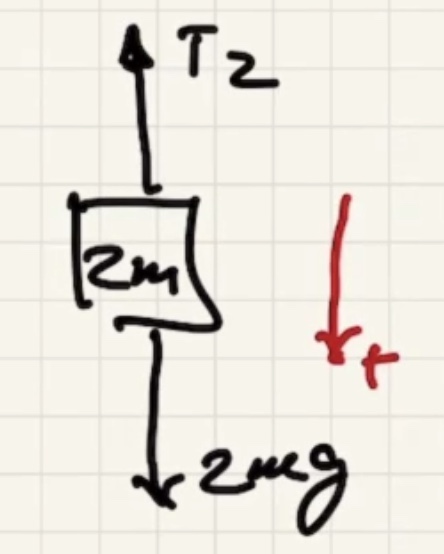 T2
2m
+
2mg